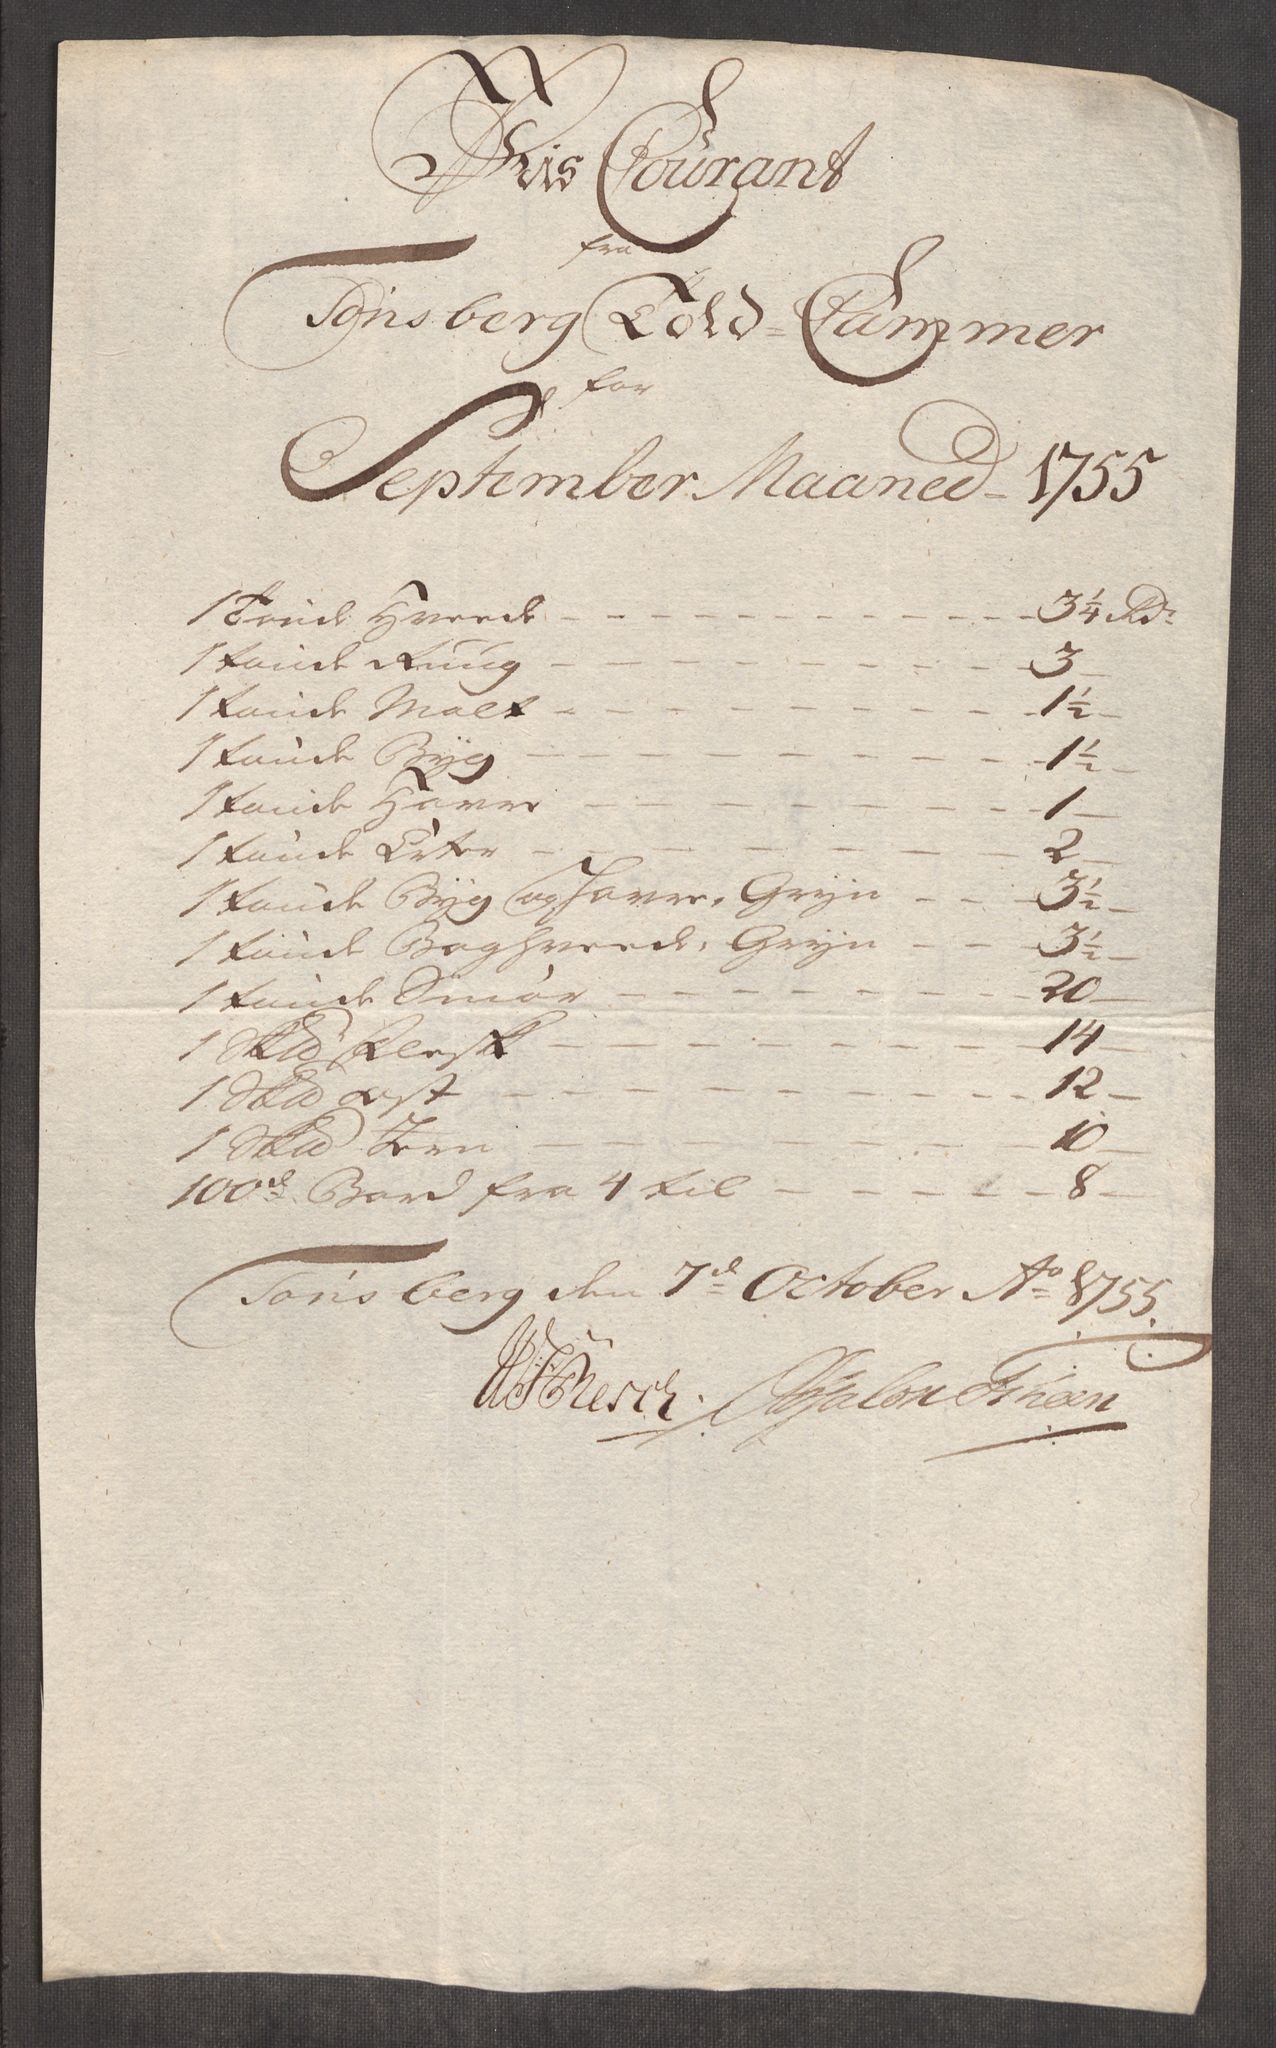 Priis Courant
fra
Tønsberg Told-Cammer
for
September Maaned - 1755
1 Tønde Hveede - 3¼ Rd:
1 tønde Rüüg - 3 -
1 tønde Malt - 1½ -
1 tønde Byg - 1½ -
1 tønde Havre - 1 -
1 tønde Erter - 2 -
1 tønde Byg og Havre, Gryn - 3½ -
1 tønde Boghveede, Gryn - 3½ -
1 tønde Smør - 20 -
1 Skd flesk - 14 -
1 Skd ost - 12 -
1 Skd Jern - 10 -
100de Bord fra 4 til - 8 -
Tønsberg den 7de October Ao 1755.
Resch. Thoen